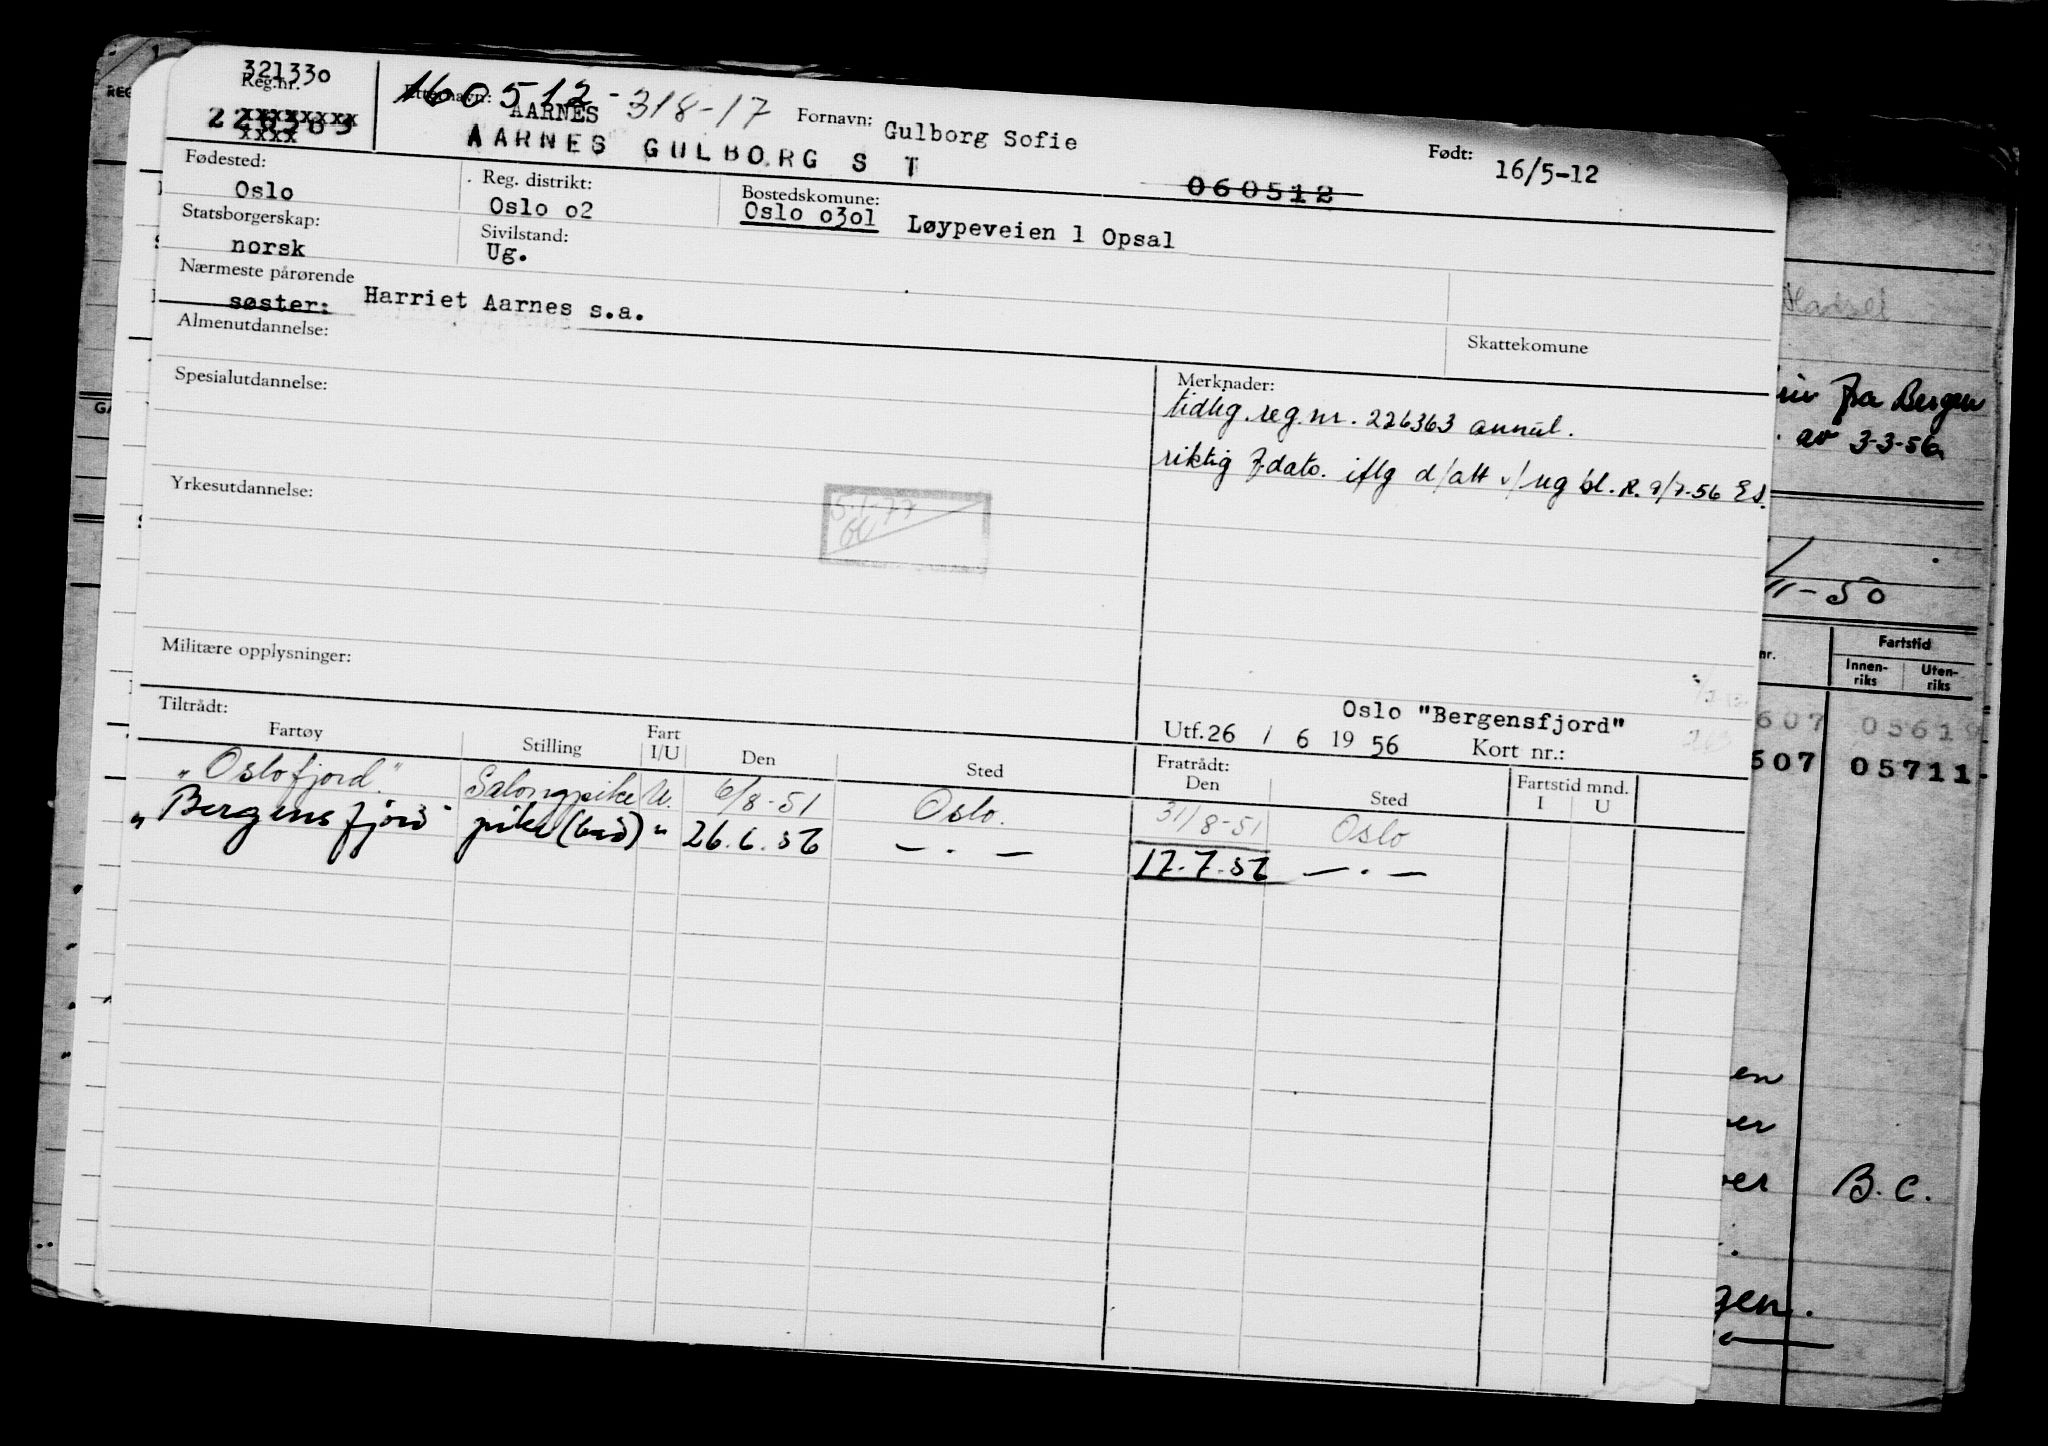 321330
Reg.nr.
xxxxxxxx
xxxx
Etternavn: 160512-318-17
AARNES
Fornavn: Gulborg Sofie
Født: 16/5-12
AARNES GULBORG S T
060512
Fødested:
Oslo
Reg. distrikt:
Oslo o2
Bostedskomune:
Oslo o3o1 Løypeveien 1 Opsal
Statsborgerskap:
norsk
Sivilstand:
Ug.
Nærmeste pårørende
søster: Harriet Aarnes s.a.
Almenutdannelse:
Skattekomune
Spesialutdannelse:
Merknader:
tidlig. reg. nr. 226363 annul.
riktig f.dato. iflg d/att v/ug bl. R. 9/7-56 Es.
Yrkesutdannelse:
5-1-77
Militære opplysninger:
Oslo "Bergensfjord"
Utf. 26 / 6 19 56 Kort nr.:
Tiltrådt:
Fartøy Stilling Fart I/U Den Sted
Fratrådt:
Den Sted Fartstid mnd.
I U
"Oslofjord" Salongpike U. 6/8-51 Oslo. 31/8-51 Oslo
"Bergensfjord" pike (bad) " 26.6.56 — . — 17.7.56 — . —
Hadsel
fra Bergen
av 3-3-56
11-50
nr. Fartstid
Innen-
riks
Uten-
riks
607 05619
607 05711-
en
er
ver B.C.
gen.